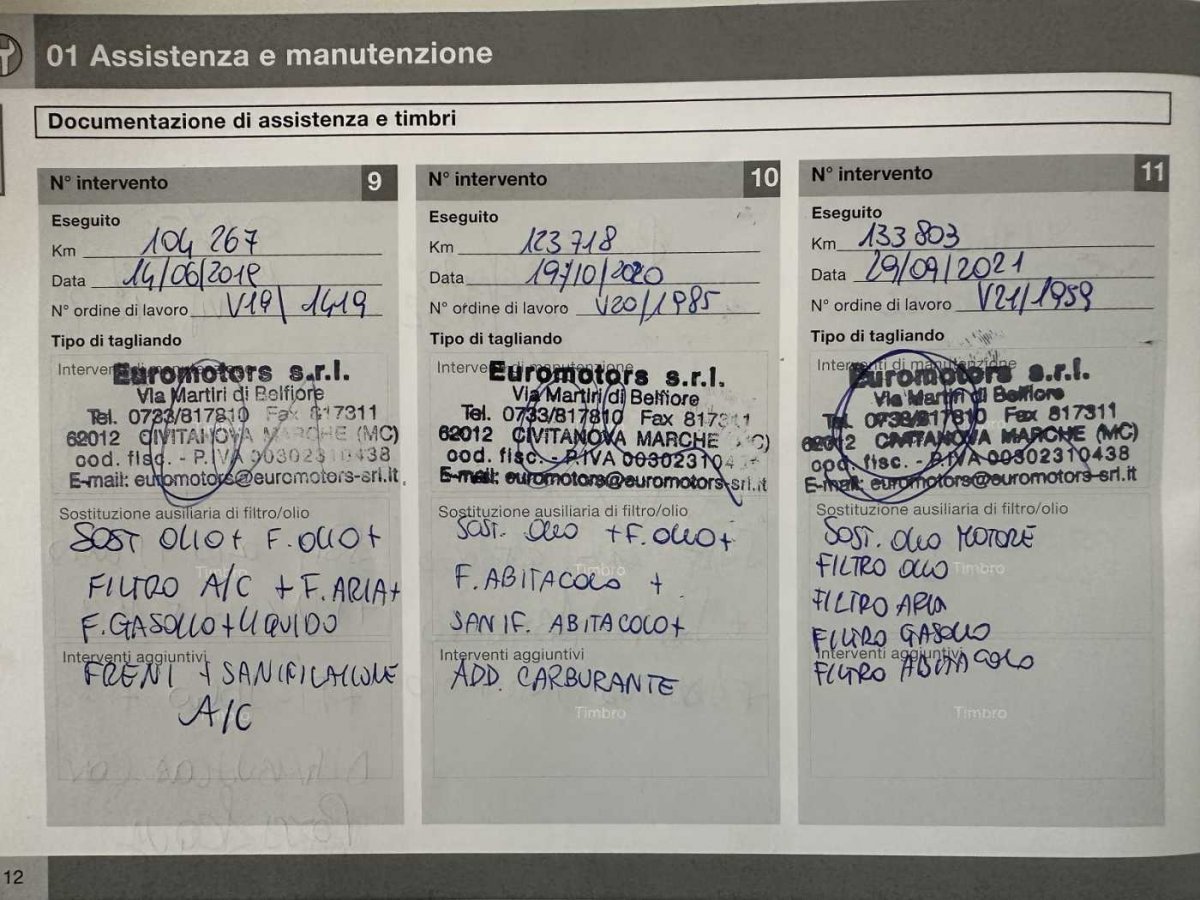 01 Assistenza e manutenzione
Documentazione di assistenza e timbri
N° intervento 9
Eseguito
Km 104 267
Data 14/06/2019
N° ordine di lavoro V19/1419
Tipo di tagliando
Euromotors s.r.l.
Via Martiri di Belfiore
Tel. 0733/817810 Fax 817311
62012 CIVITANOVA MARCHE (MC)
cod. fisc. - P.IVA 00302310438
E-mail: euromotors@euromotors-srl.it
Sostituzione ausiliaria di filtro/olio
SOST OLIO + F. OLIO +
Timbro
FILTRO A/C + F. ARIA +
F. GASOLIO + LIQUIDO
Interventi aggiuntivi
FRENI + SANIFICAZIONE
A/C
N° intervento 10
Eseguito
Km 123718
Data 19/10/2020
N° ordine di lavoro V20/1985
Tipo di tagliando
Interventi di manutenzione
Euromotors s.r.l.
Via Martiri di Belfiore
Tel. 0733/817810 Fax 817311
62012 CIVITANOVA MARCHE (MC)
cod. fisc. - P.IVA 003023104
E-mail: euromotors@euromotors-srl.it
Sostituzione ausiliaria di filtro/olio
SOST. OLIO + F. OLIO +
Timbro
F. ABITACOLO +
SANIF. ABITACOLO +
Interventi aggiuntivi
ADD. CARBURANTE
Timbro
N° intervento 11
Eseguito
Km 133803
Data 29/09/2021
N° ordine di lavoro V21/1959
Tipo di tagliando
Interventi di manutenzione
Euromotors s.r.l.
Via Martiri di Belfiore
Tel. 0733/817810 Fax 817311
62012 CIVITANOVA MARCHE (MC)
cod. fisc. - P.IVA 00302310438
E-mail: euromotors@euromotors-srl.it
Sostituzione ausiliaria di filtro/olio
SOST. OLIO MOTORE
FILTRO OLIO Timbro
FILTRO ARIA
FILTRO GASOLIO
Interventi aggiuntivi
FILTRO ABITACOLO
Timbro
12